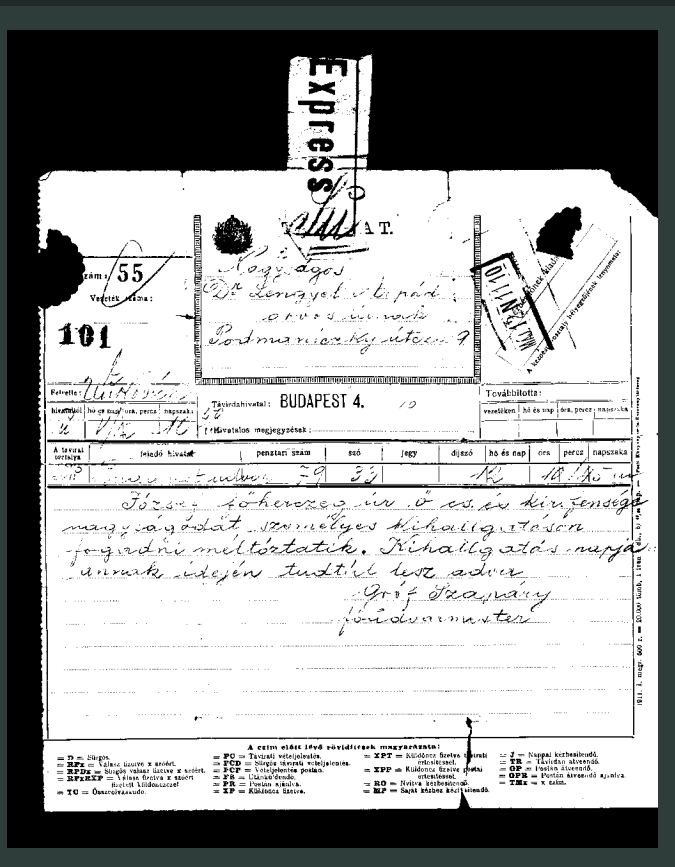 Express
55
Vezeték száma:
101
Nagyságos
Dr Lengyel Árpád
orvos úrnak
Podmaniczky útcza 9
MÁJ 13 N 11 10
Felvette:
Távirdahivatal: BUDAPEST 4.
Hivatalos megjegyzések:
Továbbította:
hivatalból hó és nap óra, perc napszak
vezetéken hó és nap óra, perc napszaka
A távirat osztálya feladó hivatal pénztári szám szó jegy díjszó hó és nap óra perc napszaka
79 33 12 10 45
József főherczeg úr ő cs. és kir. fensége
nagyságodat személyes kihallgatáson
fogadni méltóztatik. Kihallgatás napja
annak idején tudtúl lesz adva
Gróf Szapáry
főudvarmester
A czím előtt lévő rövidítések magyarázata:
= D = Sürgős.
= RPx = Válasz fizetve x szóért.
= RPDx = Sürgős válasz fizetve x szóért.
= RPxXP = Válasz fizetve x szóért
fizetett küldönczczel
= TC = Összeolvasandó.
= PC = Távirati vételjelentés.
= PCD = Sürgős távirati vételjelentés.
= PCP = Vételjelentés postán.
= FS = Utánküldendő.
= PR = Postán ajánlva.
= XP = Küldöncz fizetve.
= XPT = Küldöncz fizetve távirati
értesítéssel.
= XPP = Küldöncz fizetve postai
értesítéssel.
= RO = Nyitva kézbesítendő.
= MP = Saját kézhez kézbesítendő.
= J = Nappal kézbesítendő.
= TR = Távirdán átveendő.
= GP = Postán átveendő.
= GPR = Postán átveendő ajánlva.
= TMx = x szám.